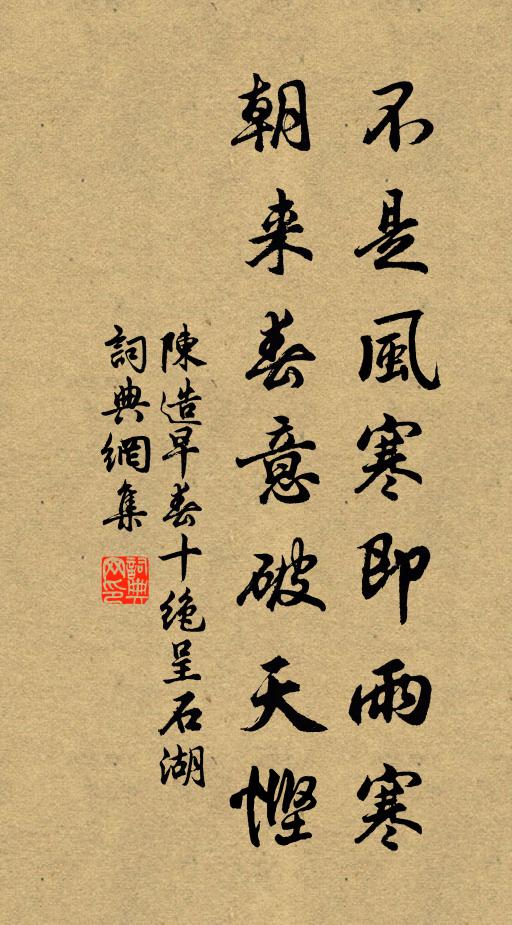 不是風寒即雨寒
朝来春意破天慳
陳造早春十絶呈石湖
詞典網集
詞典网印